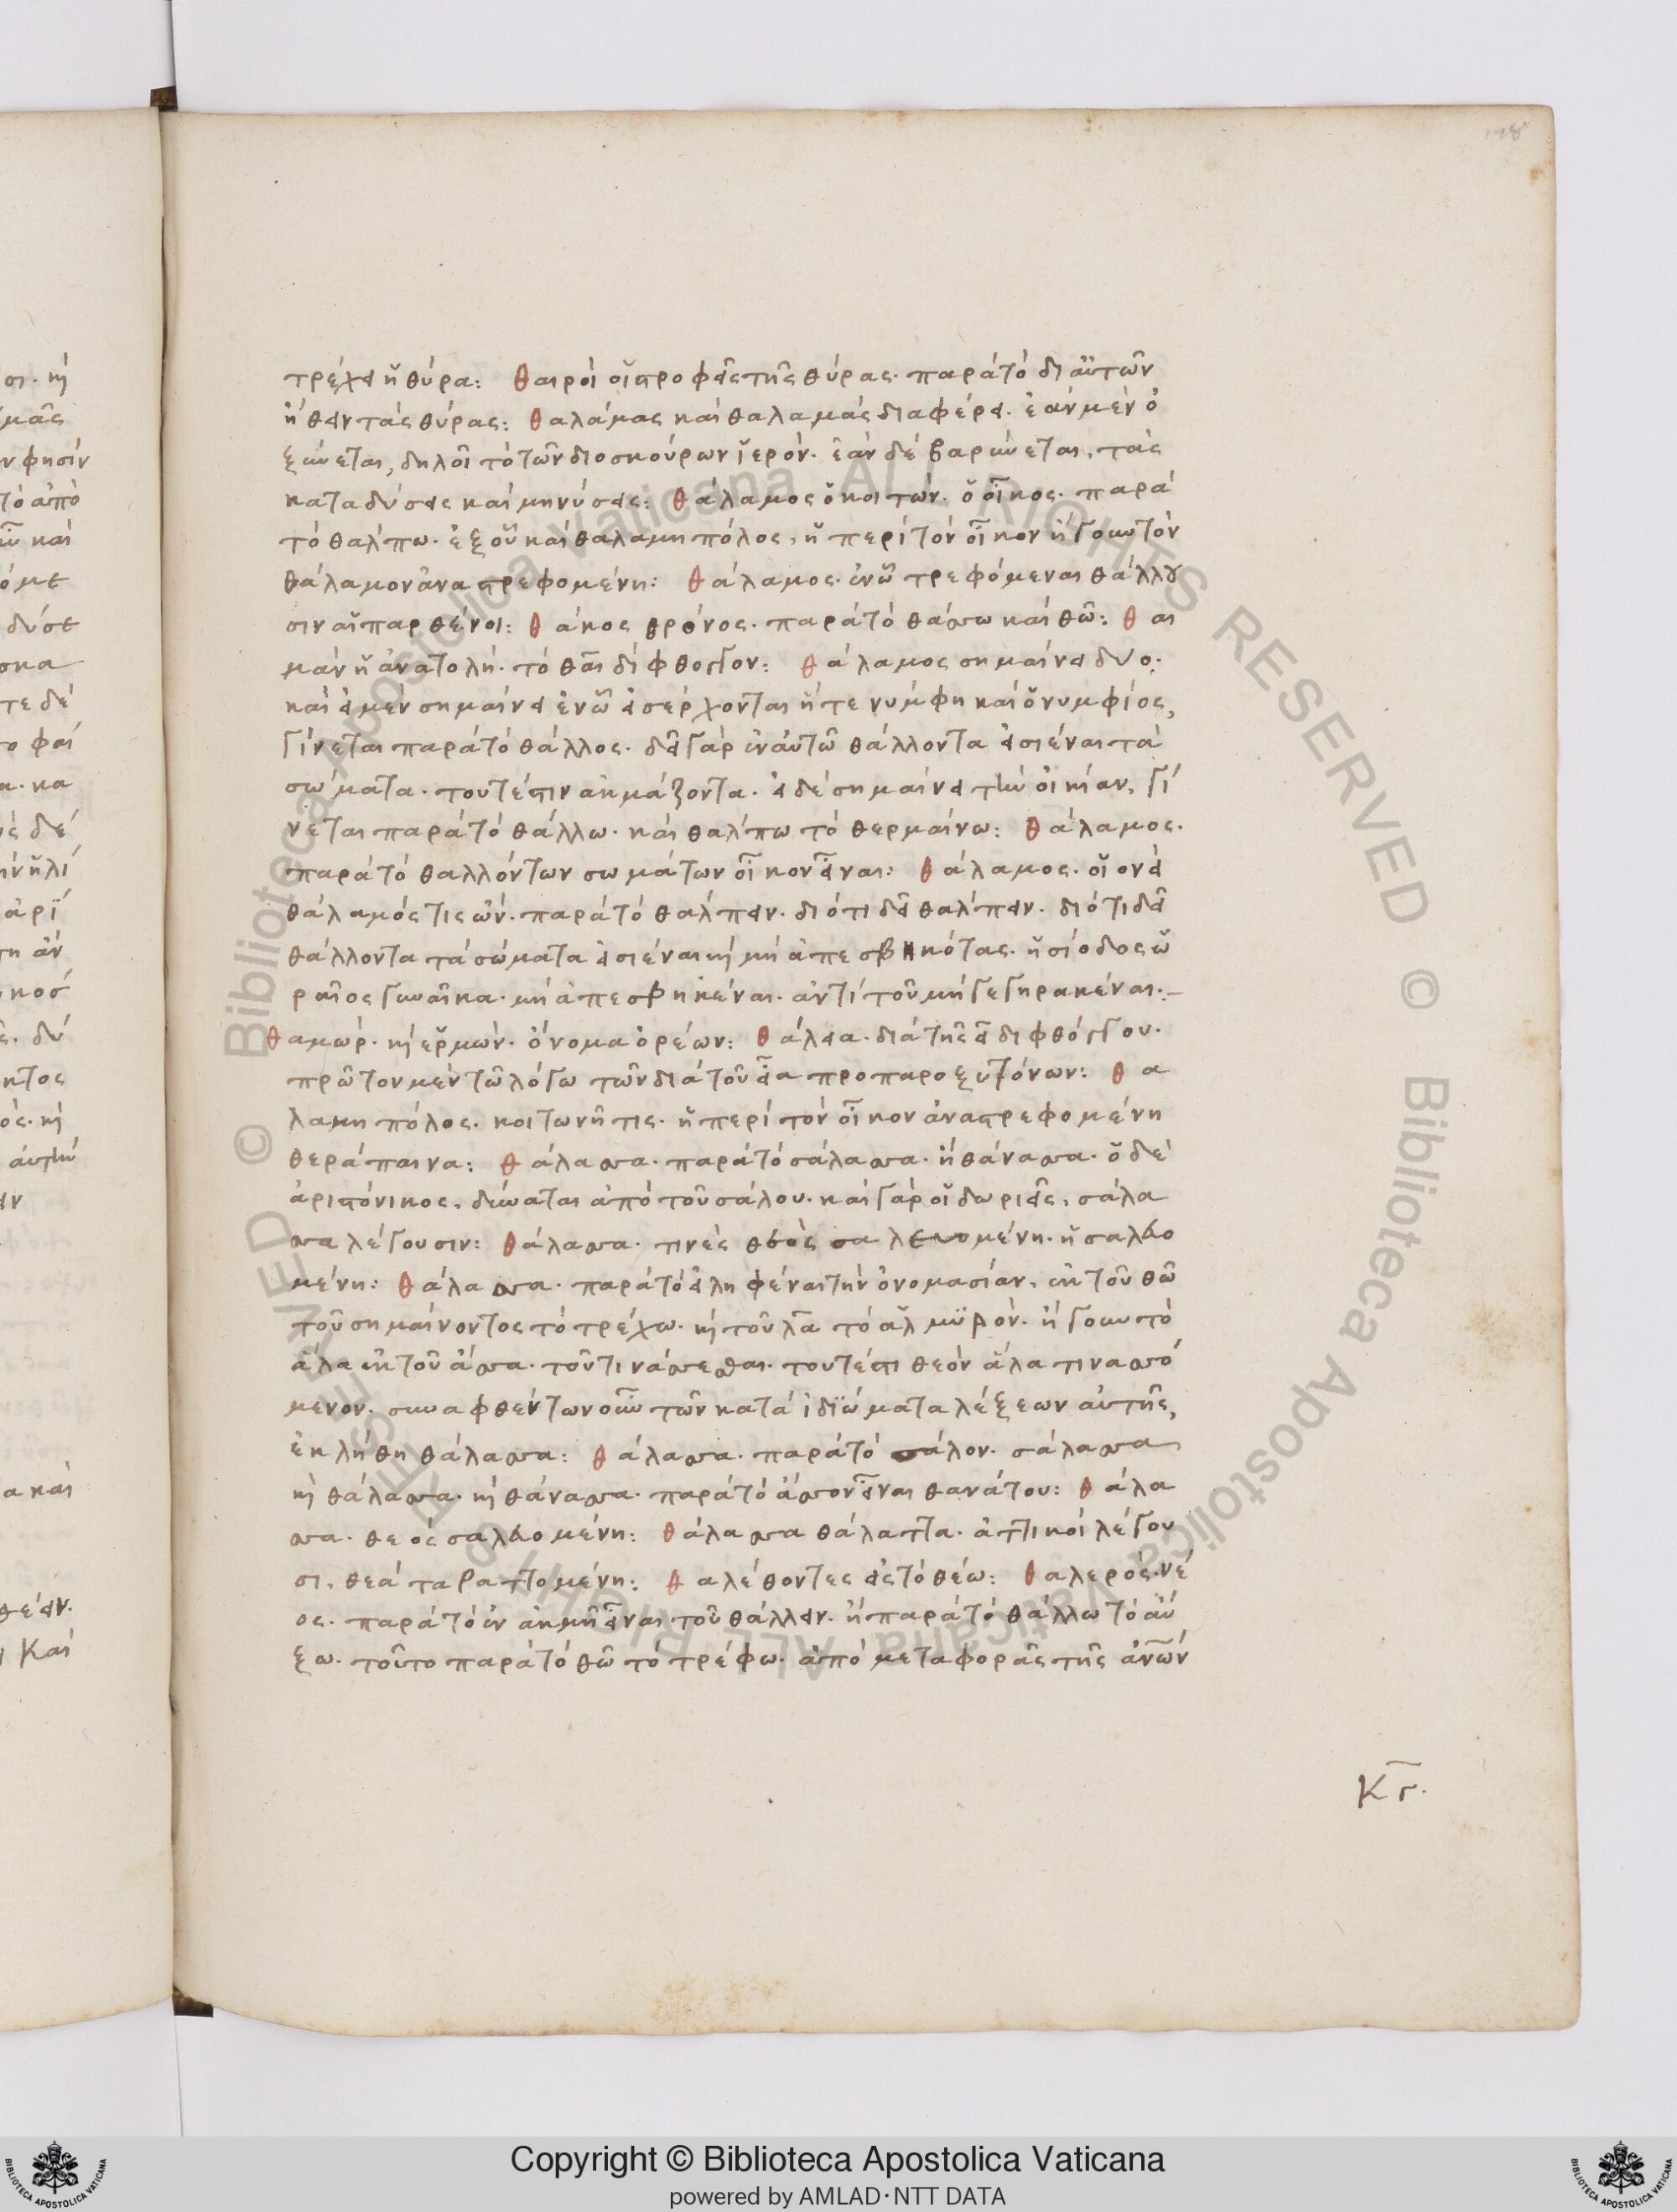 τρέχει ἡ θύρα: Θαιροὶ οἱ στροφεῖς τῆς θύρας· παρὰ τὸ δι αὐτῶν
ἤθειν τὰς θύρας: Θαλάμας καὶ θαλαμὰς διαφέρει· ἐὰν μὲν ὀ
ξύνεται, δηλοῖ τὸ τῶν διοσκούρων ἱερόν· ἐὰν δὲ βαρύνεται, τὰς
καταδύσεις καὶ μηνύσεις: Θάλαμος ὁ κοιτών· ὁ οἶκος· παρὰ
τὸ θάλπω· ἐξ οὗ καὶ θαλαμηπόλος, ἡ περὶ τὸν οἶκον ἤγουν τὸν
θάλαμον ἀναστρεφομένη: Θάλαμος· ἐν ᾧ τρεφόμεναι θάλλου
σιν αἱ παρθένοι: Θάκος θρόνος· παρὰ τὸ θάσσω καὶ θῶ: Θαι
μάν ἡ ἀνατολή· τὸ θαι δίφθογγον: Θάλαμος σημαίνει δύο·
καὶ εἰ μὲν σημαίνει ἐν ᾧ εἰσέρχονται ἥ τε νύμφη καὶ ὁ νυμφίος,
γίνεται παρὰ τὸ θάλλος· δεῖ γὰρ ἐν αὐτῷ θάλλοντα εἰσιέναι τὰ
σώματα· τουτέστιν ἀκμάζοντα· εἰ δὲ σημαίνει τὴν οἰκίαν, γί
νεται παρὰ τὸ θάλλω· καὶ θάλπω τὸ θερμαίνω: Θάλαμος·
παρὰ τὸ θαλλόντων σωμάτων οἶκον εἶναι: Θάλαμος· οἱονεὶ
θάλαμός τις ὤν· παρὰ τὸ θάλπειν· διότι δεῖ θάλπειν· διότι δεῖ
θάλλοντα τὰ σώματα εἰσιέναι καὶ μὴ ἀπεσβηκότας· ἡσίοδος ὡ
ραῖος γυναῖκα· μὴ ἀπεσβηκέναι· ἀντὶ τοῦ μὴ γεγηρακέναι·
Θαμώρ· καὶ ἑρμών· ὄνομα ὀρέων: Θάλεια· διὰ τῆς ει διφθόγγου·
πρῶτον μὲν τῷ λόγω τῶν διὰ τοῦ εια προπαροξυτόνων: Θα
λαμηπόλος· κοιτωνῆτις· ἡ περὶ τὸν οἶκον ἀναστρεφομένη
θεράπαινα: Θάλασσα· παρὰ τὸ σάλασσα· ἢ θάνασσα· ὁ δὲ
ἀριστόνικος, δύναται ἀπὸ τοῦ σάλου· καὶ γὰρ οἱ δωριεῖς, σάλα
σσα λέγουσιν: Θάλασσα· τινὲς θεὸς σαλευομένη· ἡ σαλευο
μένη: Θάλασσα· παρὰ τὸ εἰληφέναι τὴν ὀνομασίαν, ἐκ τοῦ θῶ
τοῦ σημαίνοντος τὸ τρέχω· καὶ τοῦ λα τὸ ἁλμυρόν· ἤγουν τὸ
ἅλα ἐκ τοῦ ἄσσα· τουτέστι θεὸν ἅλα
μενον· συναφθέντων οὖν τῶν κατὰ ἰδιώματα λέξεων αὐτῆς,
ἐκλήθη θάλασσα: Θάλασσα· παρὰ τὸ σάλον· σάλασσα
καὶ θάλασσα· καὶ θάνασσα· παρὰ τὸ ἄσσον εἶναι θανάτου: Θάλα
σσα· θεὸς σαλευομένη: Θάλασσα θάλαττα· ἀττικοὶ λέγου
σι, θεὰ ταραττομένη: Θαλέθοντες εἰς τὸ θέω: Θαλερός· νέ
ος· παρὰ τὸ ἐν ἀκμῇ εἶναι τοῦ θάλλειν· ἢ παρὰ τὸ θάλλω τὸ αὔ
ξω· τοῦτο παρὰ τὸ θῶ τὸ τρέφω· ἀπὸ μεταφορᾶς τῆς ἀνῶν